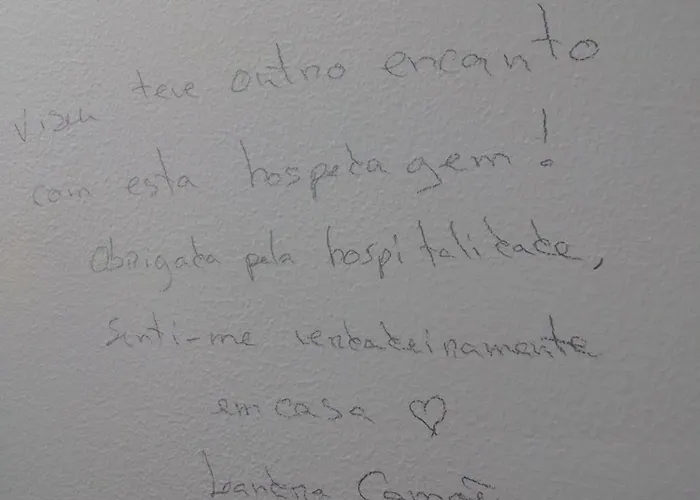 Viseu teve outro encanto
com esta hospedagem!
Obrigada pela hospitalidade,
Senti-me verdadeiramente
em casa ♡